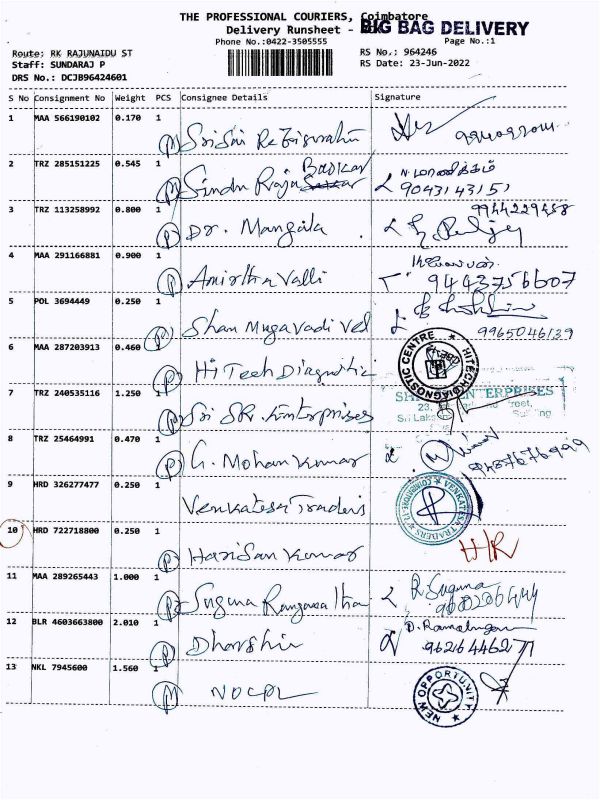 THE PROFESSIONAL COURIERS, Coimbatore
Delivery Runsheet -
BIG BAG DELIVERY
Phone No.:0422-3505555
Page No.:1
Route: RK RAJUNAIDU ST
RS No.: 964246
Staff: SUNDARAJ P
RS Date: 23-Jun-2022
DRS No.: DCJB96424601
S No Consignment No Weight PCS Consignee Details Signature
1 MAA 566190102 0.170 1
2 TRZ 285151225 0.545 1 Sindu Raja Baskar
N. மாணிக்கம்
9043143151
3 TRZ 113258992 0.800 1 Dr. Mangala
9944229458
4 MAA 291166881 0.900 1 Amirtha Valli
9443756607
5 POL 3694449 0.250 1 Shan Mugavadi Vel
9965046139
6 MAA 287203913 0.460 1 HiTech Diagnostic
HITECH DIAGNOSTIC CENTRE
7 TRZ 240535116 1.250 1 Sri SR. Enterprises
ENTERPRISES
8 TRZ 25464991 0.470 1 G. Mohan Kumar
9 HRD 326277477 0.250 Venkatesa Traders
VENKATESA TRADERS
10 HRD 722718800 0.250 1 Harisan Kumar
HR
11 MAA 289265443 1.000 1 Suguna Ranganathan
R. Suguna
12 BLR 4603663800 2.010 1 Dharshin
D. Ramalingam
13 NKL 7945600 1.560 1 NOCPL
NEW OPPORTUNITY